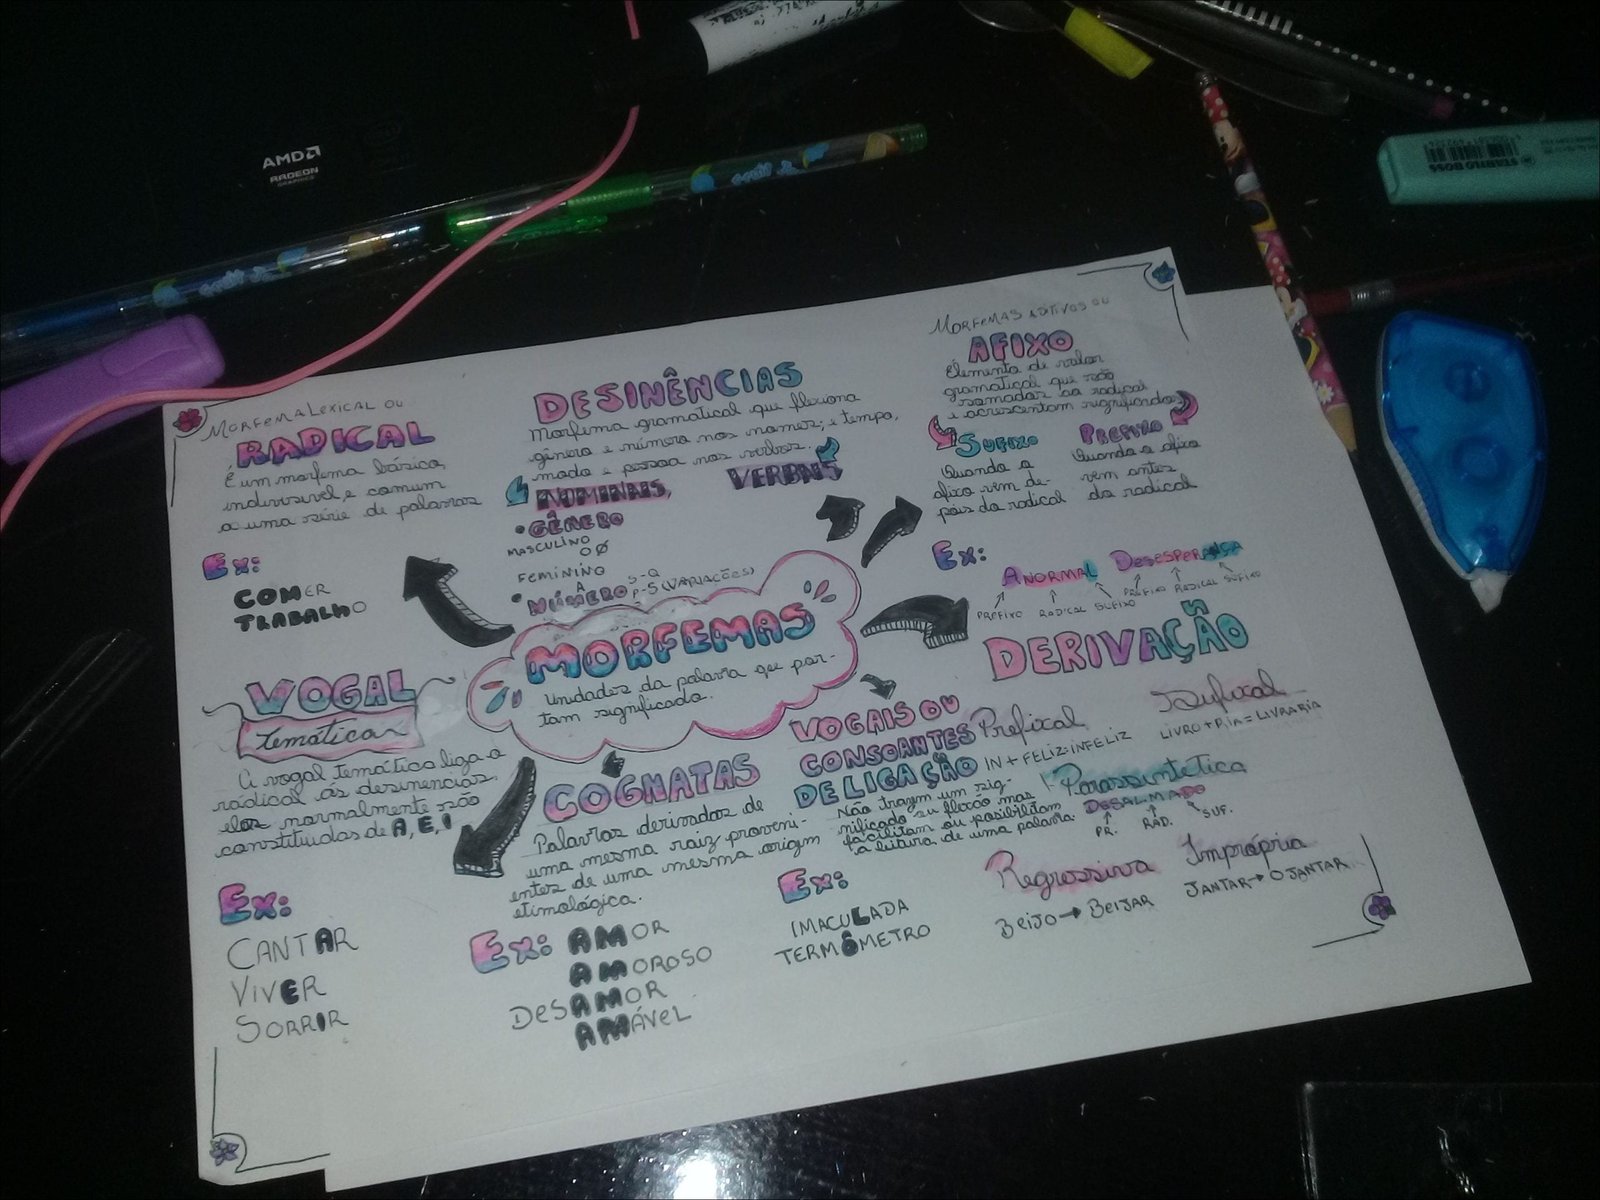 AMD
RADEON
GRAPHICS
STABILO BOSS
MORFEMA LEXICAL OU
RADICAL
É um morfema básico,
indivisível e comum
a uma série de palavras
Ex:
COMER
TRABALHO
DESINÊNCIAS
Morfema gramatical que flexiona
gênero e número nos nomes; e tempo,
modo e pessoa nos verbos.
NOMINAIS,
VERBAIS
• GÊNERO
MASCULINO
O Ø
FEMININO
A
• NÚMERO
S-Q
P-S (VARIAÇÕES)
MORFEMAS ADITIVOS OU
AFIXO
Elemento de valor
gramatical que são
somados ao radical
e acrescentam significados
SUFIXO
Quando o
afixo vem de-
pois do radical
PREFIXO
Quando o afixo
vem antes
do radical
Ex:
ANORMAL
PREFIXO RADICAL SUFIXO
DESESPERANÇA
PREFIXO RADICAL SUFIXO
MORFEMAS
Unidades da palavra que por-
tam significado.
VOGAL
temática
A vogal temática liga o
radical às desinências,
elas normalmente são
constituídas de A, E, I
Ex:
CANTAR
VIVER
SORRIR
COGNATAS
Palavras derivadas de
uma mesma raiz proveni-
entes de uma mesma origem
etimológica.
Ex: AMOR
AMOROSO
DESAMOR
AMÁVEL
VOGAIS OU
CONSOANTES
DE LIGAÇÃO
Não trazem um sig-
nificado ou flexão mas
facilitam ou possibilitam
a leitura de uma palavra.
Ex:
IMACULADA
TERMÔMETRO
DERIVAÇÃO
Prefixal
IN + FELIZ = INFELIZ
Sufixal
LIVRO + R.IA = LIVRARIA
Parassintética
DESALMADO
PR. RAD. SUF.
Regressiva
BEIJO → BEIJAR
Imprópria
JANTAR → O JANTAR